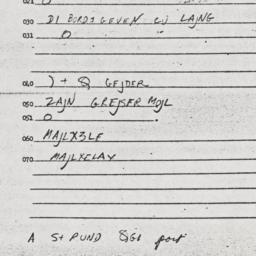 021 O
030 DI BORDJ GEVEN CU LAJNG
031 O "
040 ) + Q GEJDER
050 ZAJN GREJSER MOJL
051 O
060 MAJLX3LE
070 MAJLXELAX
A S+ PUND